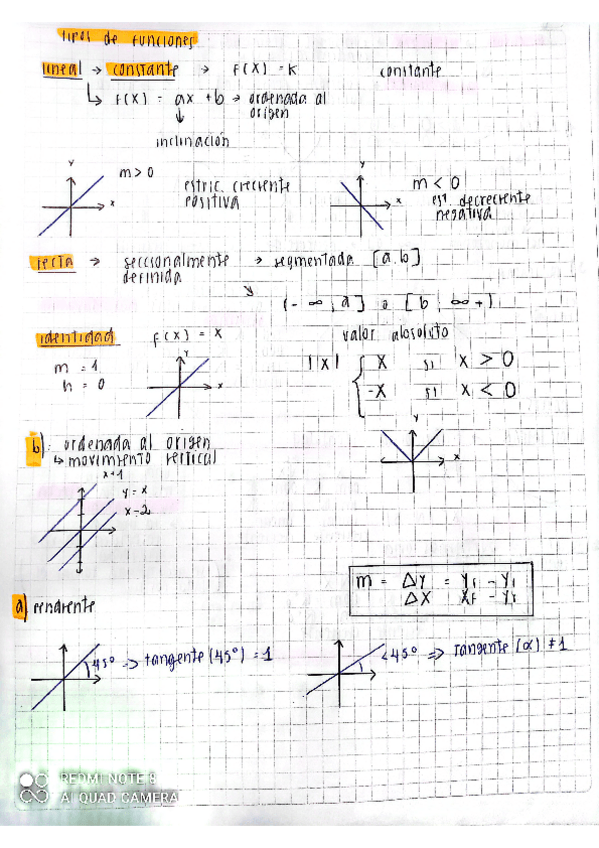 tipos de funciones
lineal → constante → F(X) = K constante
↳ F(X) = ax + b → ordenada al origen
↓
inclinación
y
m > 0
x
estric. creciente
positiva
y
m < 0
x
est. decreciente
negativa
recta → seccionalmente definida → segmentada [a,b]
y
(-∞, a] o [b, ∞+)
identidad f(x) = x
m = 1
h = 0
y
x
valor absoluto
|x| { X si x > 0
-X si x < 0
y
x
b) ordenada al origen
↳ movimiento vertical
x+1
y = x
x-2
m = ΔY = Yf - Yi
ΔX Xf - Yi
a) pendiente
45° => tangente (45°) = 1
<45° => tangente (α) ≠ 1
REDMI NOTE 8
AI QUAD CAMERA